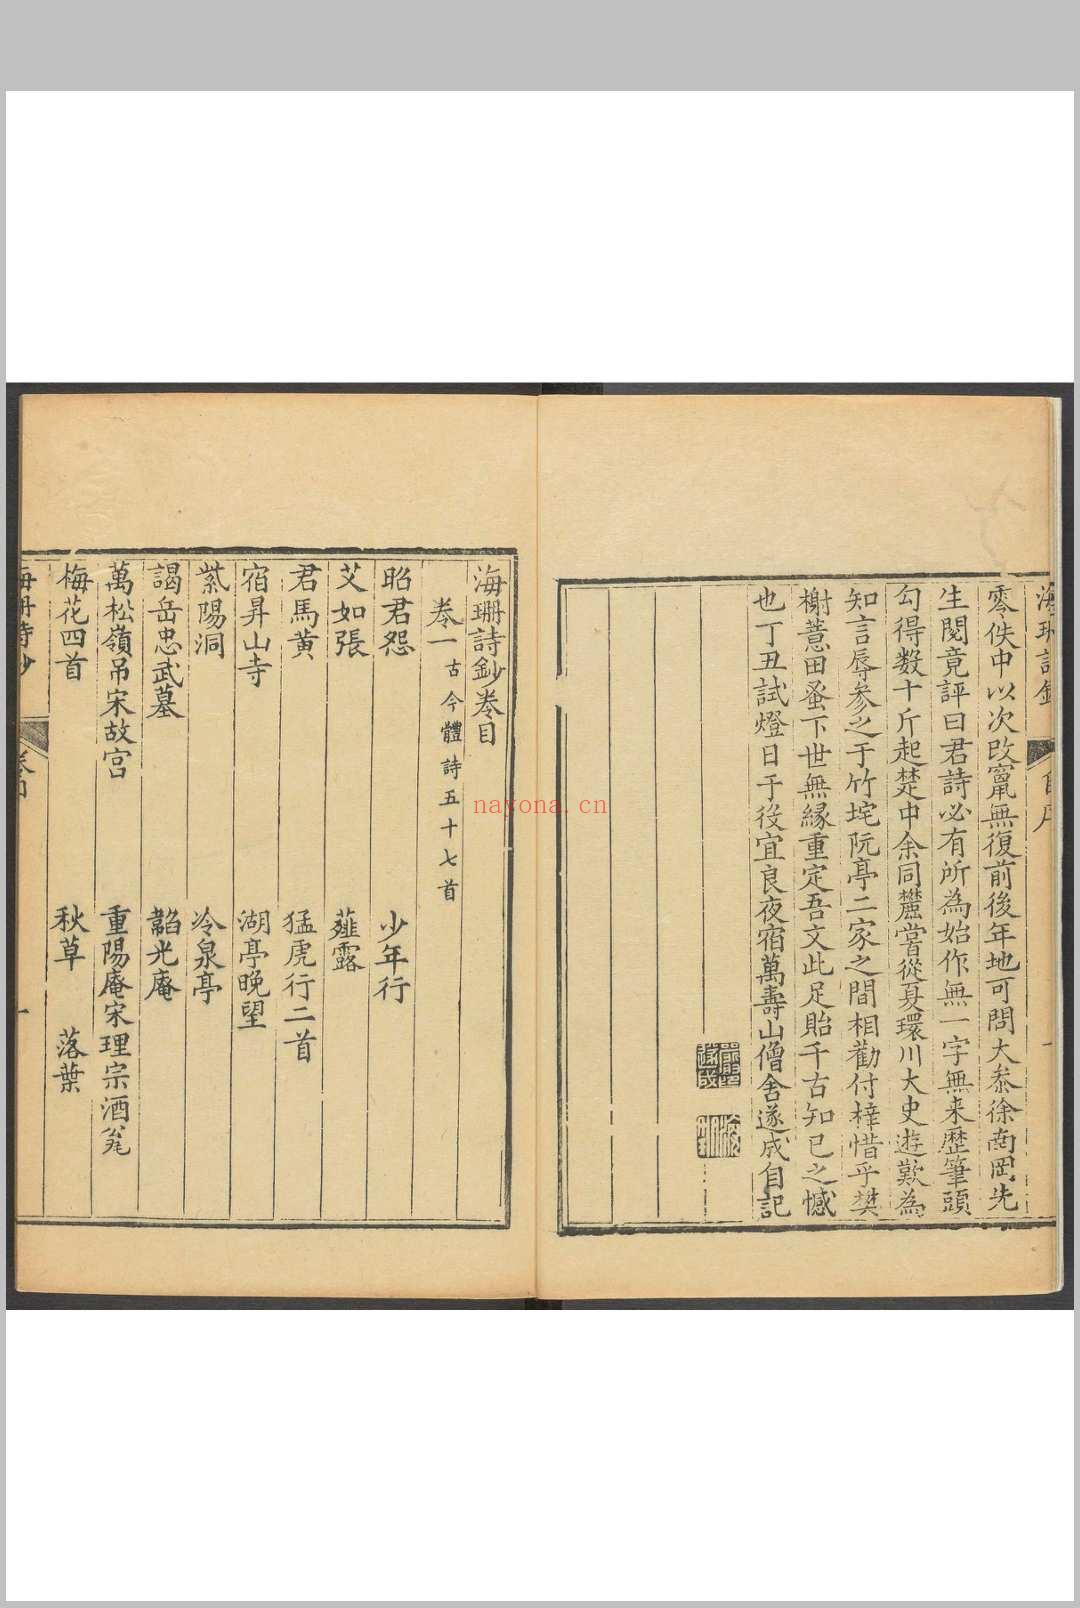 海珊詩鈔
自序
一
零佚中以次改竄無復前後年地可問大叅徐南岡先
生閱竟評曰君詩必有所為始作無一字無来歴筆頭
勾得数十斤起楚中余同麓嘗從夏環川大史遊歎為
知言辱参之于竹垞阮亭二家之間相勸付梓惜乎樊
榭薏田蚤下世無縁重定吾文此足貽千古知已之憾
也丁丑試燈日于役宜良夜宿萬壽山僧舍遂成自記
海珊詩鈔卷目
卷一 古今體詩五十七首
昭君怨 少年行
艾如張 薤露
君馬黄 猛虎行二首
宿昇山寺 湖亭晚望
紫陽洞 冷泉亭
謁岳忠武墓 韜光庵
萬松嶺吊宋故宫 重陽庵宋理宗酒瓮
梅花四首 秋草 落葉
海珊詩鈔
卷目
一
nayona.cn